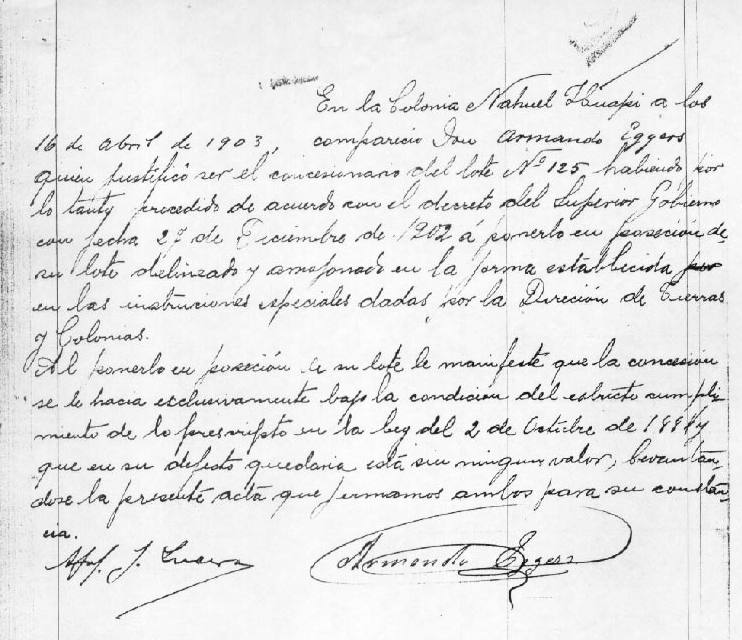 En la Colonia Nahuel Huapi a los
16 de abril de 1903, comparecio Don Armando Eggers
quien justificó ser el concesionario del lote Nº 125 habiendo por
lo tanto procedido de acuerdo con el decreto del Superior Gobierno
con fecha 27 de Diciembre de 1902 á ponerlo en poseción de
su lote delineado y amojonado en la forma establecida
en las instruciones especiales dadas por la Direción de Tierras
y Colonias.
Al ponerlo en poseción de su lote le manifesté que la concesión
se le hacia exclusivamente bajo la condicion del estricto cumpli-
miento de lo prescripto en la ley del 2 de Octubre de 1884 y
que en su defecto quedaria esta sin ningun valor, levantan-
dose la presente acta que firmamos ambos para su constan-
cia.
Armando Eggers